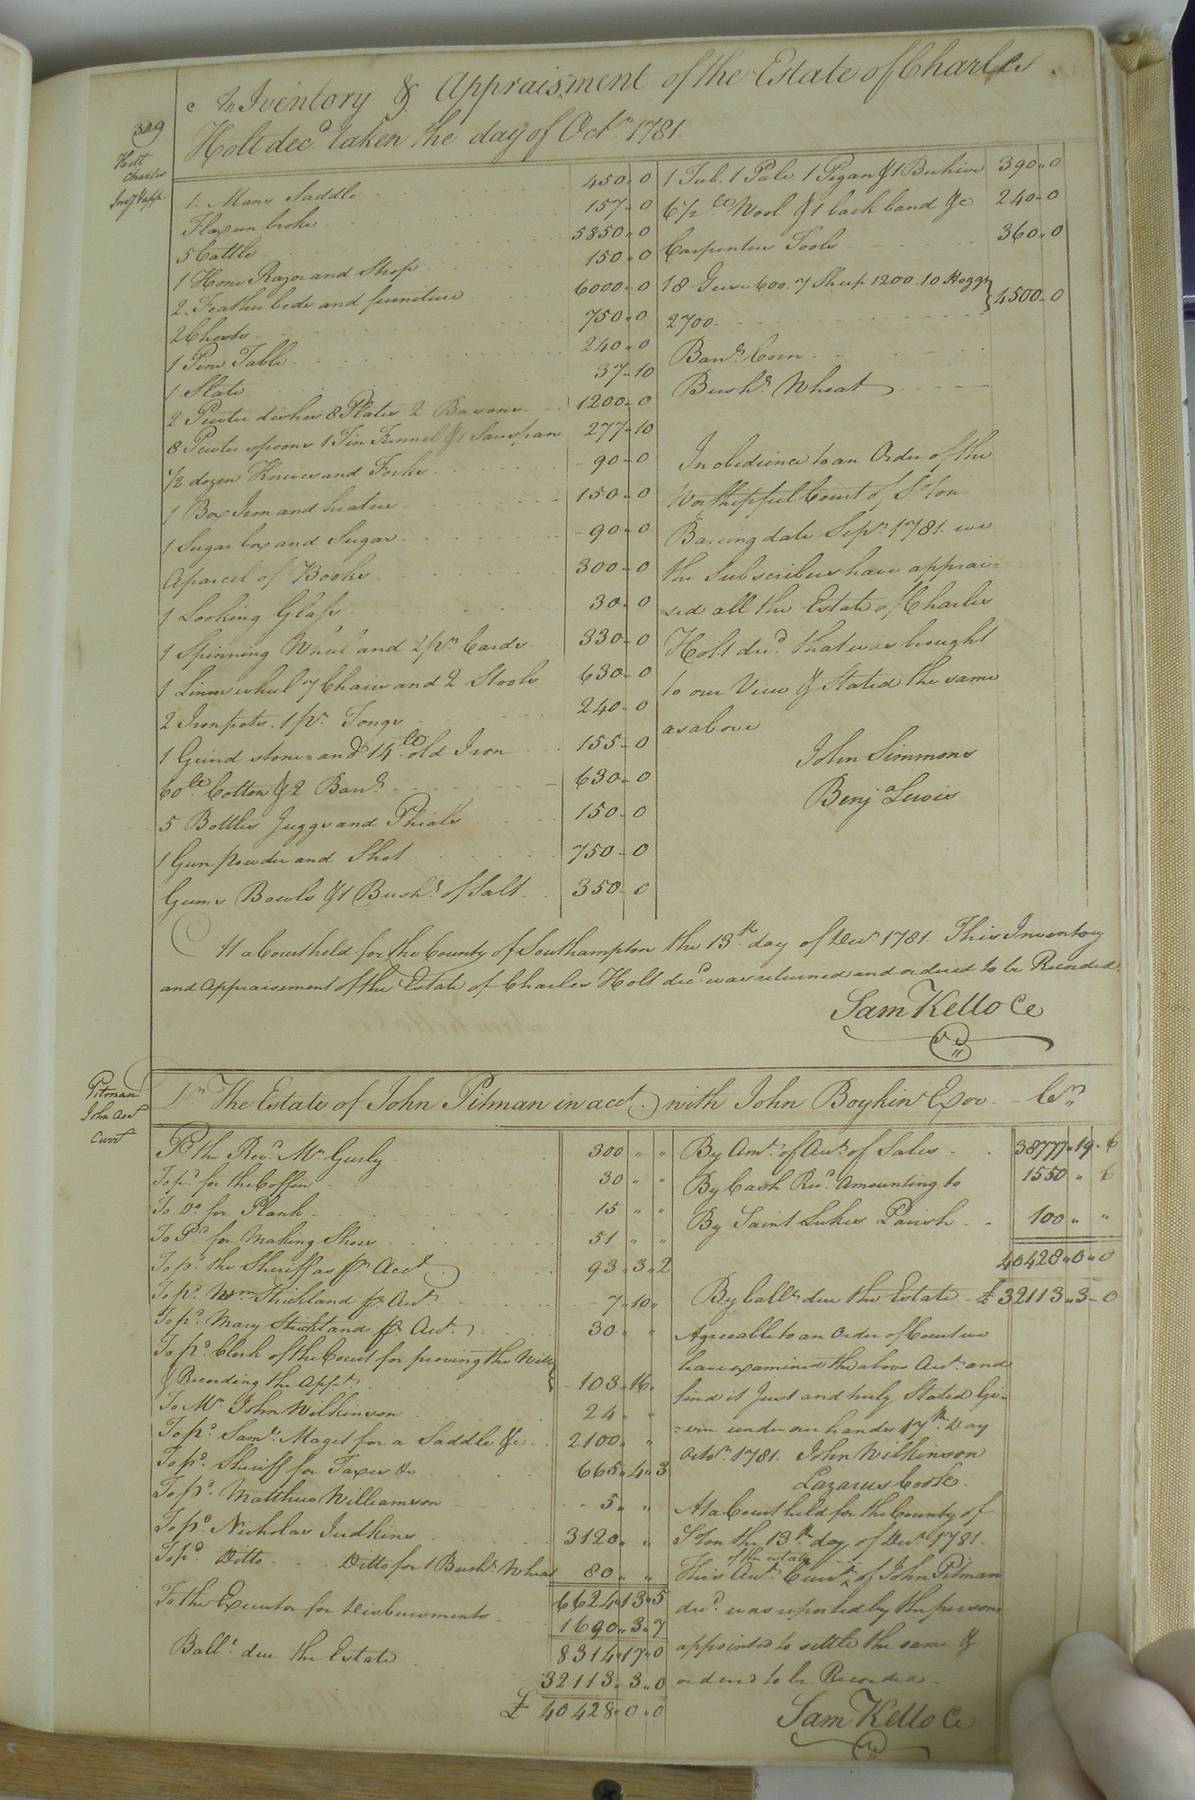 329
Holt
Charles
Invy & app
An Iventory & Appraisment of the Estate of Charles
Holt decd. taken the day of Octr. 1781.
1 Mans Saddle 450 " 0
Flax un broke 157 " 0
5 Cattle 5850 " 0
1 Hone Razor and Strop 150 " 0
2 Feather beds and furniture 6000 " 0
2 Chests 750 " 0
1 Pine Table 240 " 0
1 Slate 37 " 10
2 Pewter dishes 8 Plates 2 Basons 1200 " 0
8 Pewter spoons 1 Tin Funnel & 1 Saucpan 277 " 10
1/2 dozen Knives and Forks 90 " 0
1 Box Iron and heaters 150 " 0
1 Sugar box and Sugar 90 " 0
A parcel of Books 300 " 0
1 Looking Glass 30 " 0
1 Spinning Wheel and 2 pr. Cards 330 " 0
1 Linnen wheel 7 Chairs and 2 Stools 630 " 0
2 Iron pots. 1 pr. Tongs 240 " 0
1 Grind stone and 14 lb old Iron 155 " 0
60 lb Cotton & 2 Barls. 630 " 0
5 Bottles Juggs and Phials 150 " 0
1 Gun powder and Shot 750 " 0
Gums Bowls & 1 Bushl. of Salt 350 " 0
1 Tub. 1 Pale. 1 Pigan & 1 Beehive 390 " 0
6 1/2 lb Wool & 1 back band &c 240 " 0
Carpenters Tools 360 " 0
18 Geese 600. 7 Sheep 1200. 10 Hoggs
2700 } 4500 " 0
Barrs. Corn
Bushs. Wheat
In obedience to an Order of the
Worshipful Court of So'ton
Bareing date Sepr. 1781. we
the Subscribers have apprai=
sed all the Estate of Charles
Holt decd. that was brought
to our View & Stated the same
as above
John Simmons
Benja Lewis
At a Court held for the County of Southampton the 13th. day of Decr 1781. This Inventory
and Appraisement of the Estate of Charles Holt decd. was returned and ordered to be Recorded
Sam Kello Cc
Pitman
John Acct
Currt
Dr. The Estate of John Pitman in acct. with John Boykin Exor. Cr.
To the Revd. Mr. Gurly 300 " "
To pd. for the Coffin 30 " "
To Do for Plank 15 " "
To Pd. for Making Shoes 51 " "
To pd. the Sheriff as pr. Acct. 93 " 3 " 2
To pd. Wm Strickland pr Acct 7 " 10 "
To pd. Mary Strickland pr Acct. 30 " "
To pd. Clerk of the Court for proving the Will
& Recording the Appt. } 103 " 16 "
To Mr. John Wilkinson 24 " "
To pd. Saml. Maget for a Saddle &c 2100 " "
To pd. Sheriff for Taxes &c 665 " 4 " 3
To pd. Matthew Williamson 5 " "
To pd. Nicholas Judkins 3120 " "
To pd. Ditto Ditto for 1 Bushl. Wheat 80 " "
6624 " 13 " 5
To the Executor for Disbursments 1690 " 3 " 7
8314 " 17 " 0
Balle. due the Estate 32113 " 3 " 0
£ 40428 " 0 " 0
By Amt. of Acct. of Sales 38777 " 19 " 6
By Cash Recd. Amounting to 1550 " 6
By Saint Lukes Parish 100 " "
40428 " 0 " 0
By balle. due the Estate £ 32113 " 3 " 0
Agreeable to an Order of Court we
have examined the above Acct. and
find it Just and truly Stated Gi=
=ven under our hands 17th. Day
Octor. 1781. John Wilkinson
Lazarus Cooke.
At a Court held for the County of
So'ton the 13th. day of Decr. 1781.
This Acct. Currt. of the estate of John Pitman
decd. was reported by the persons
appointed to settle the same &
ordered to be Recorded.
Sam Kello Cc